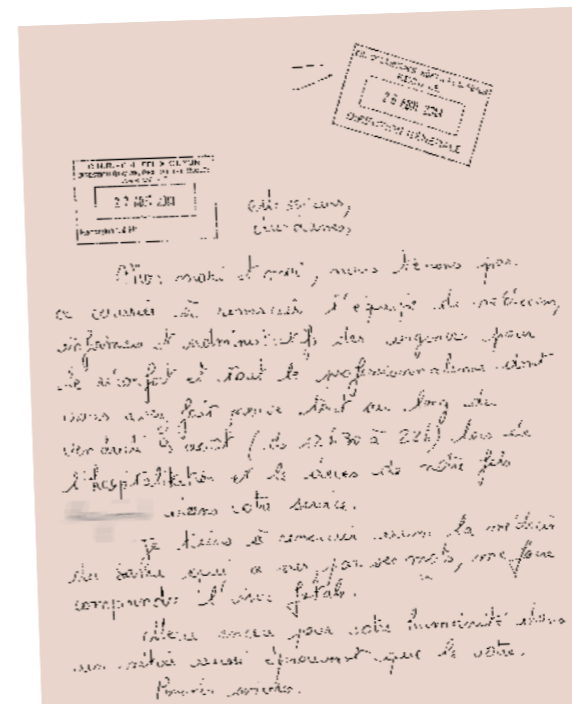 DIRECTION GÉNÉRALE
Messieurs,
Mesdames,
Mon mari et moi, nous tenons par
ce courrier à remercier l'équipe de médecins,
infirmiers et administratifs des urgences pour
le réconfort et tout le professionnalisme dont
vous avez fait preuve tout au long du
vendredi août (de 12h30 à 22h) lors de
l'hospitalisation et le décès de notre fils
dans votre service.
Je tiens à remercier aussi le médecin
du SAMU qui a su, par ses mots, me faire
comprendre l'issue fatale.
Merci encore pour votre humanité dans
un métier aussi éprouvant que le votre.